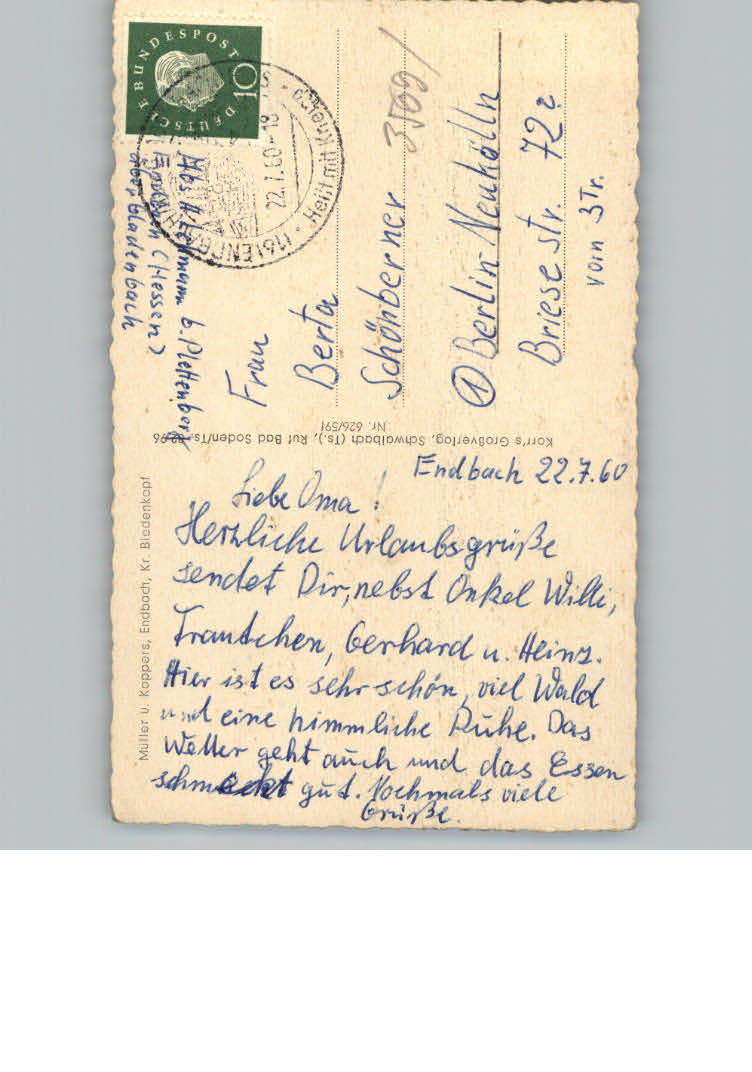 Endbach 22.7.60
Liebe Oma!
Herzliche Urlaubsgrüße
sendet Dir, nebst Onkel Willi,
Trautchen, Gerhard u. Heinz.
Hier ist es sehr schön, viel Wald
und eine himmliche Ruhe. Das
Wetter geht auch und das Essen
schmeckt gut. Nochmals viele
Grüße.
Müller u. Koppers, Endbach, Kr. Biedenkopf
Korr's Großverlag, Schwalbach (Ts.), Ruf Bad Soden/Ts.
Nr. 626/591
DEUTSCHE BUNDESPOST
10
22.7.60-18
(16) ENDBACH
Heilt mit Kneipp
Abs. b. Plettenberg
Endbach (Hessen)
über Gladenbach
Frau
Berta
Schönberner
3599/
① Berlin-Neukölln
Briesestr. 72?
vorn 3Tr.